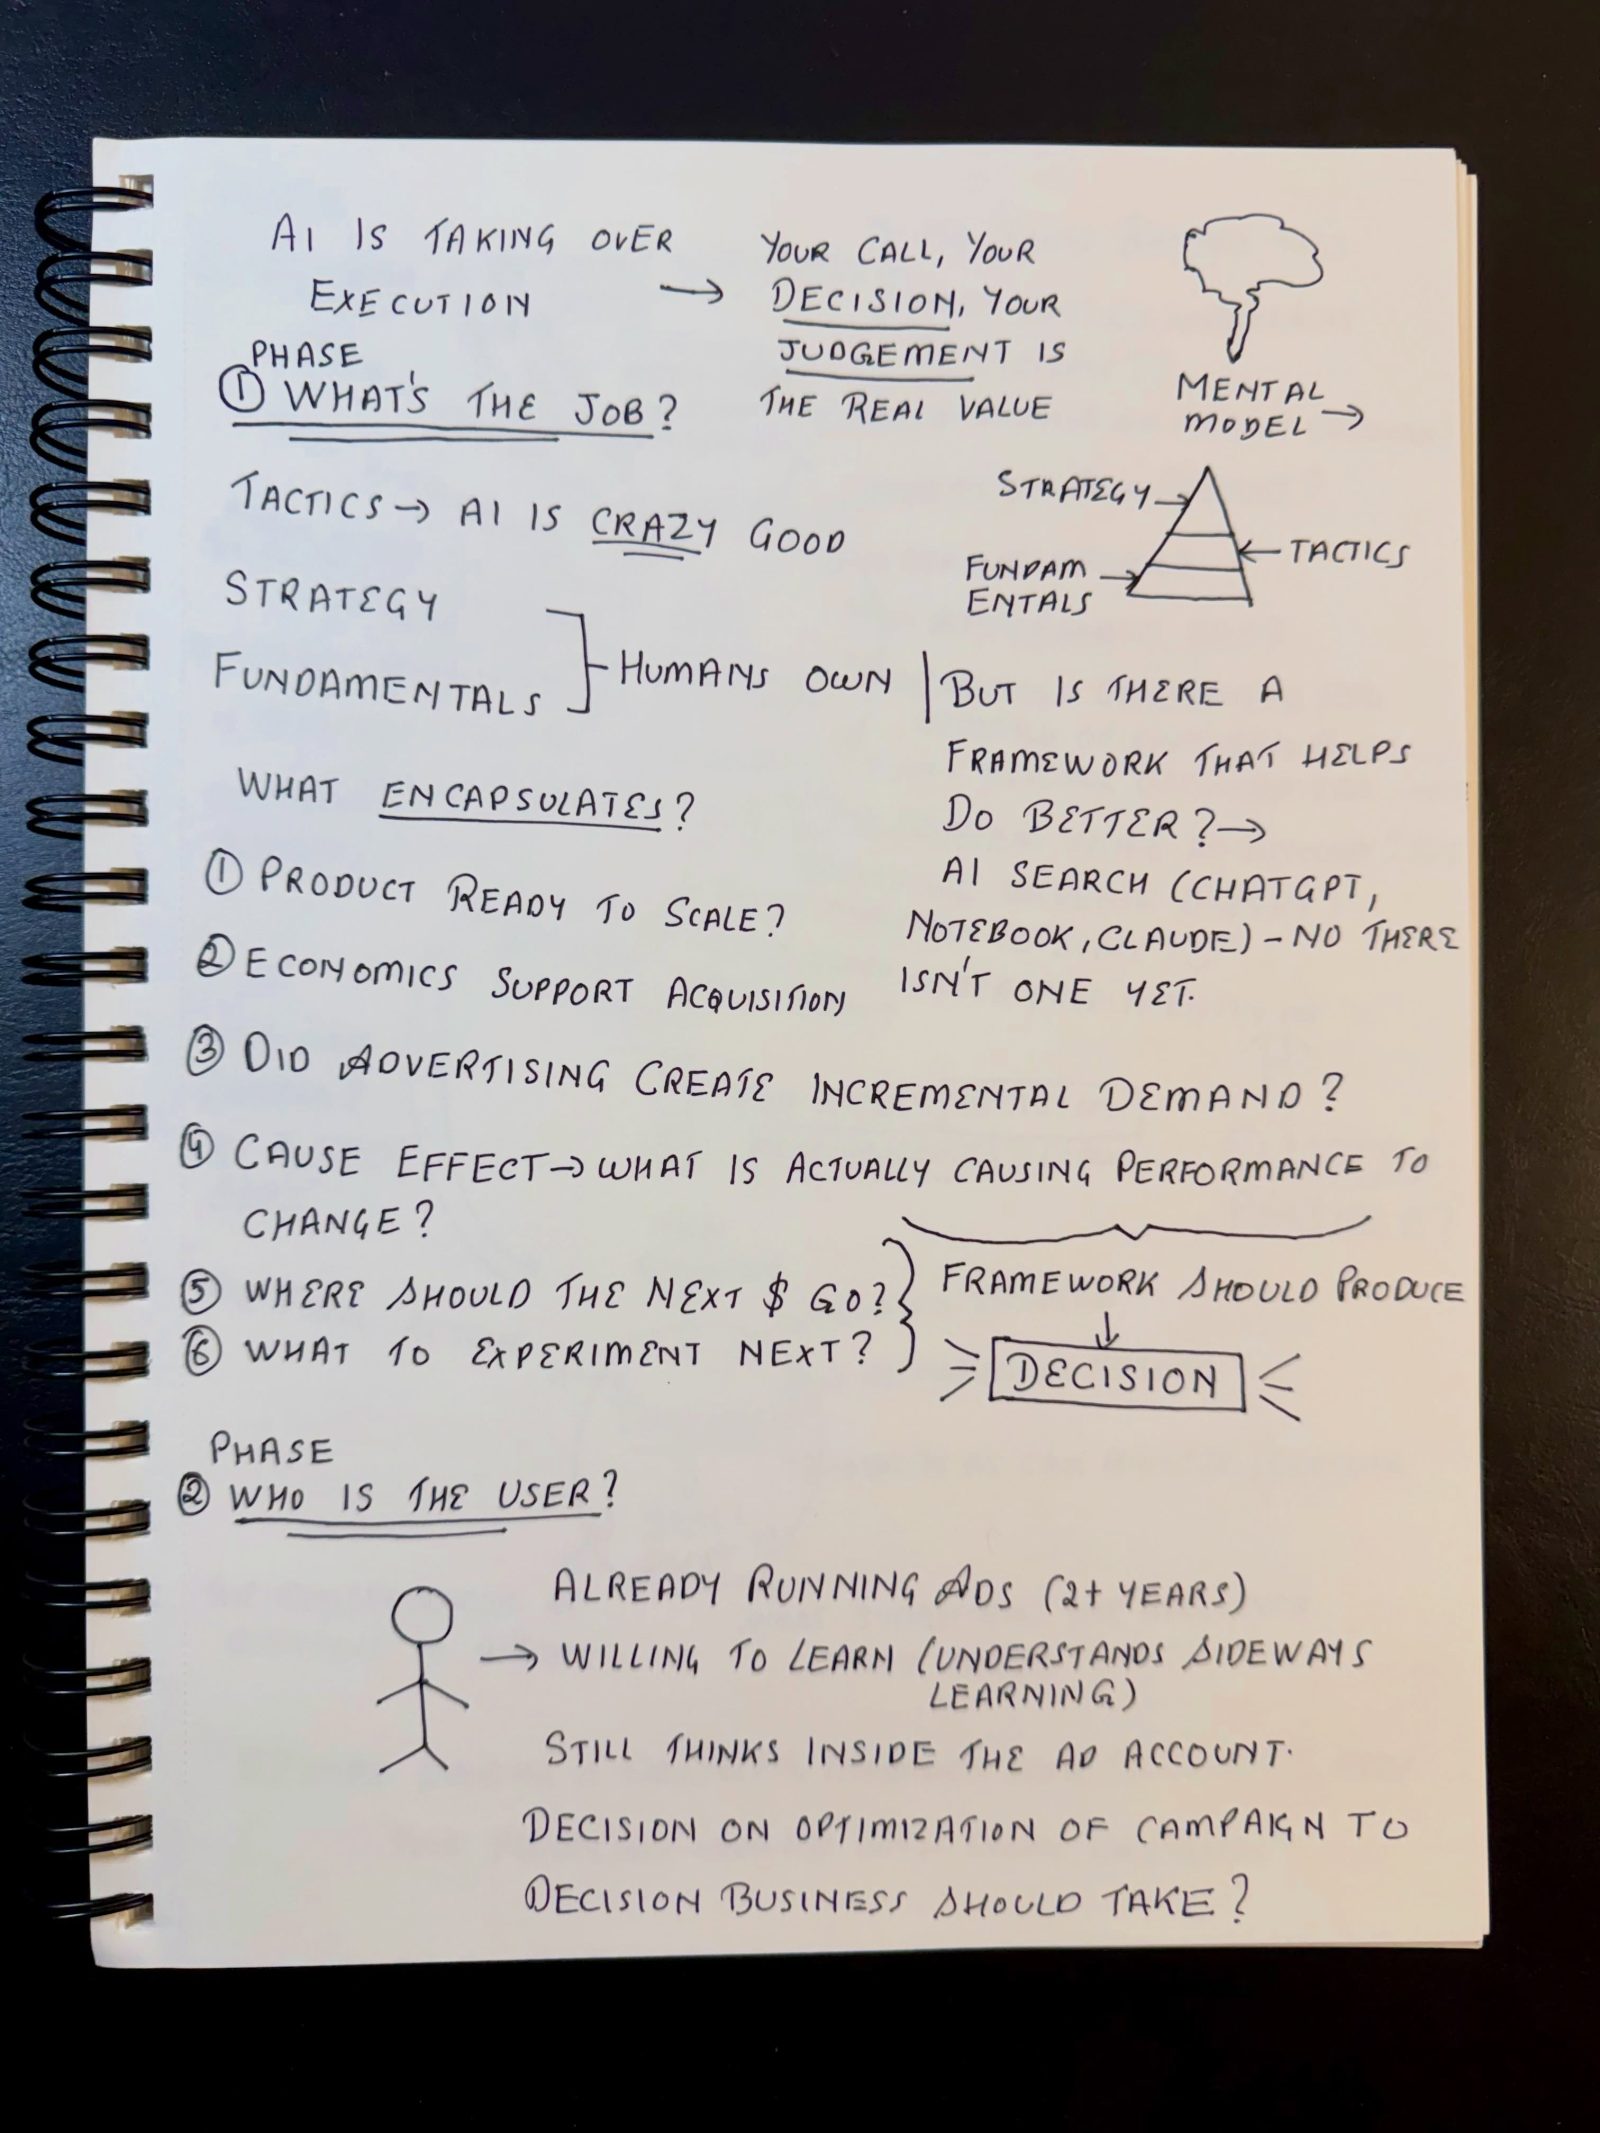 AI IS TAKING OVER
EXECUTION →
YOUR CALL, YOUR
DECISION, YOUR
JUDGEMENT IS
THE REAL VALUE
MENTAL
MODEL →
PHASE
① WHAT'S THE JOB?
TACTICS → AI IS CRAZY GOOD
STRATEGY
FUNDAMENTALS
HUMANS OWN
STRATEGY →
← TACTICS
FUNDAM →
ENTALS
BUT IS THERE A
FRAMEWORK THAT HELPS
DO BETTER? →
AI SEARCH (CHATGPT,
NOTEBOOK, CLAUDE) - NO THERE
ISN'T ONE YET.
WHAT ENCAPSULATES?
① PRODUCT READY TO SCALE?
② ECONOMICS SUPPORT ACQUISITION
③ DID ADVERTISING CREATE INCREMENTAL DEMAND?
④ CAUSE EFFECT → WHAT IS ACTUALLY CAUSING PERFORMANCE TO
CHANGE?
⑤ WHERE SHOULD THE NEXT $ GO?
⑥ WHAT TO EXPERIMENT NEXT?
FRAMEWORK SHOULD PRODUCE
↓
DECISION
PHASE
② WHO IS THE USER?
ALREADY RUNNING ADS (2+ YEARS)
→ WILLING TO LEARN (UNDERSTANDS SIDEWAYS
LEARNING)
STILL THINKS INSIDE THE AD ACCOUNT.
DECISION ON OPTIMIZATION OF CAMPAIGN TO
DECISION BUSINESS SHOULD TAKE?